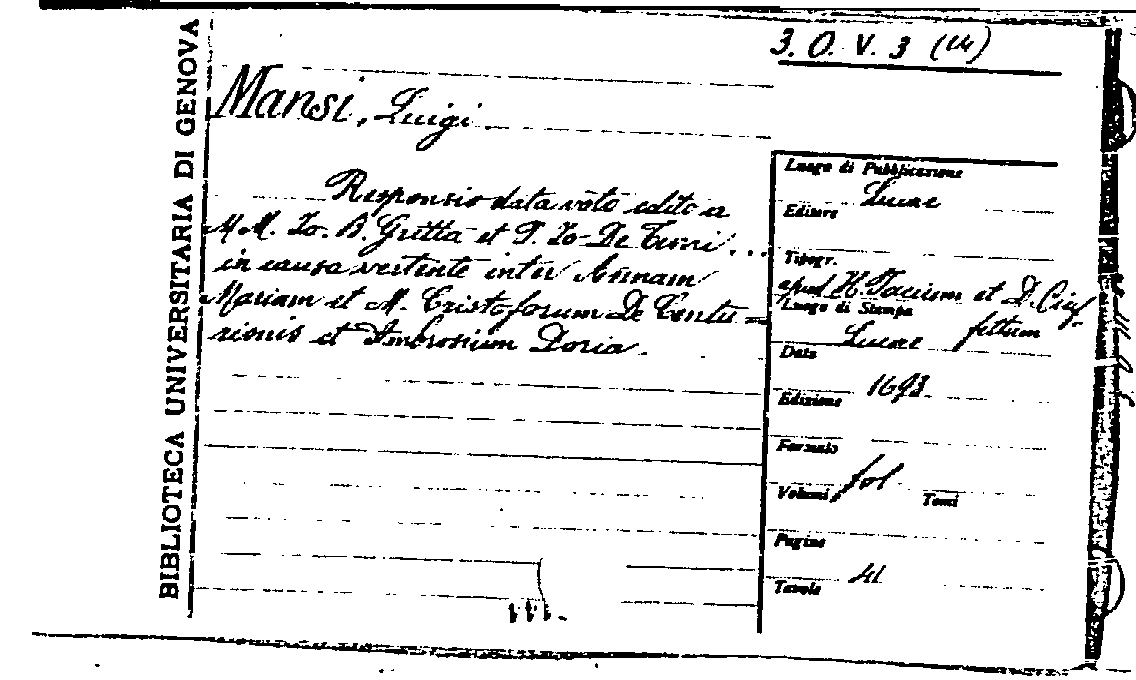 BIBLIOTECA UNIVERSITARIA DI GENOVA
3. O. V. 3 (14)
Mansi, Luigi.
Responsio data voto edito a
M. M. Io. B. Gritta et P. Io. De Turri ...
in causa vertente inter Annam
Mariam et M. Cristoforum De Centu=
rionis et Ambrosium Doria.
Luogo di Pubblicazione
Lucae
Editore
Tipogr.
apud H. Pacium et D. Ciuf-
fettum
Luogo di Stampa
Lucae
Data
1693.
Edizione
Formato
fol.
Volumi
Tomi
Pagine
41
Tavole